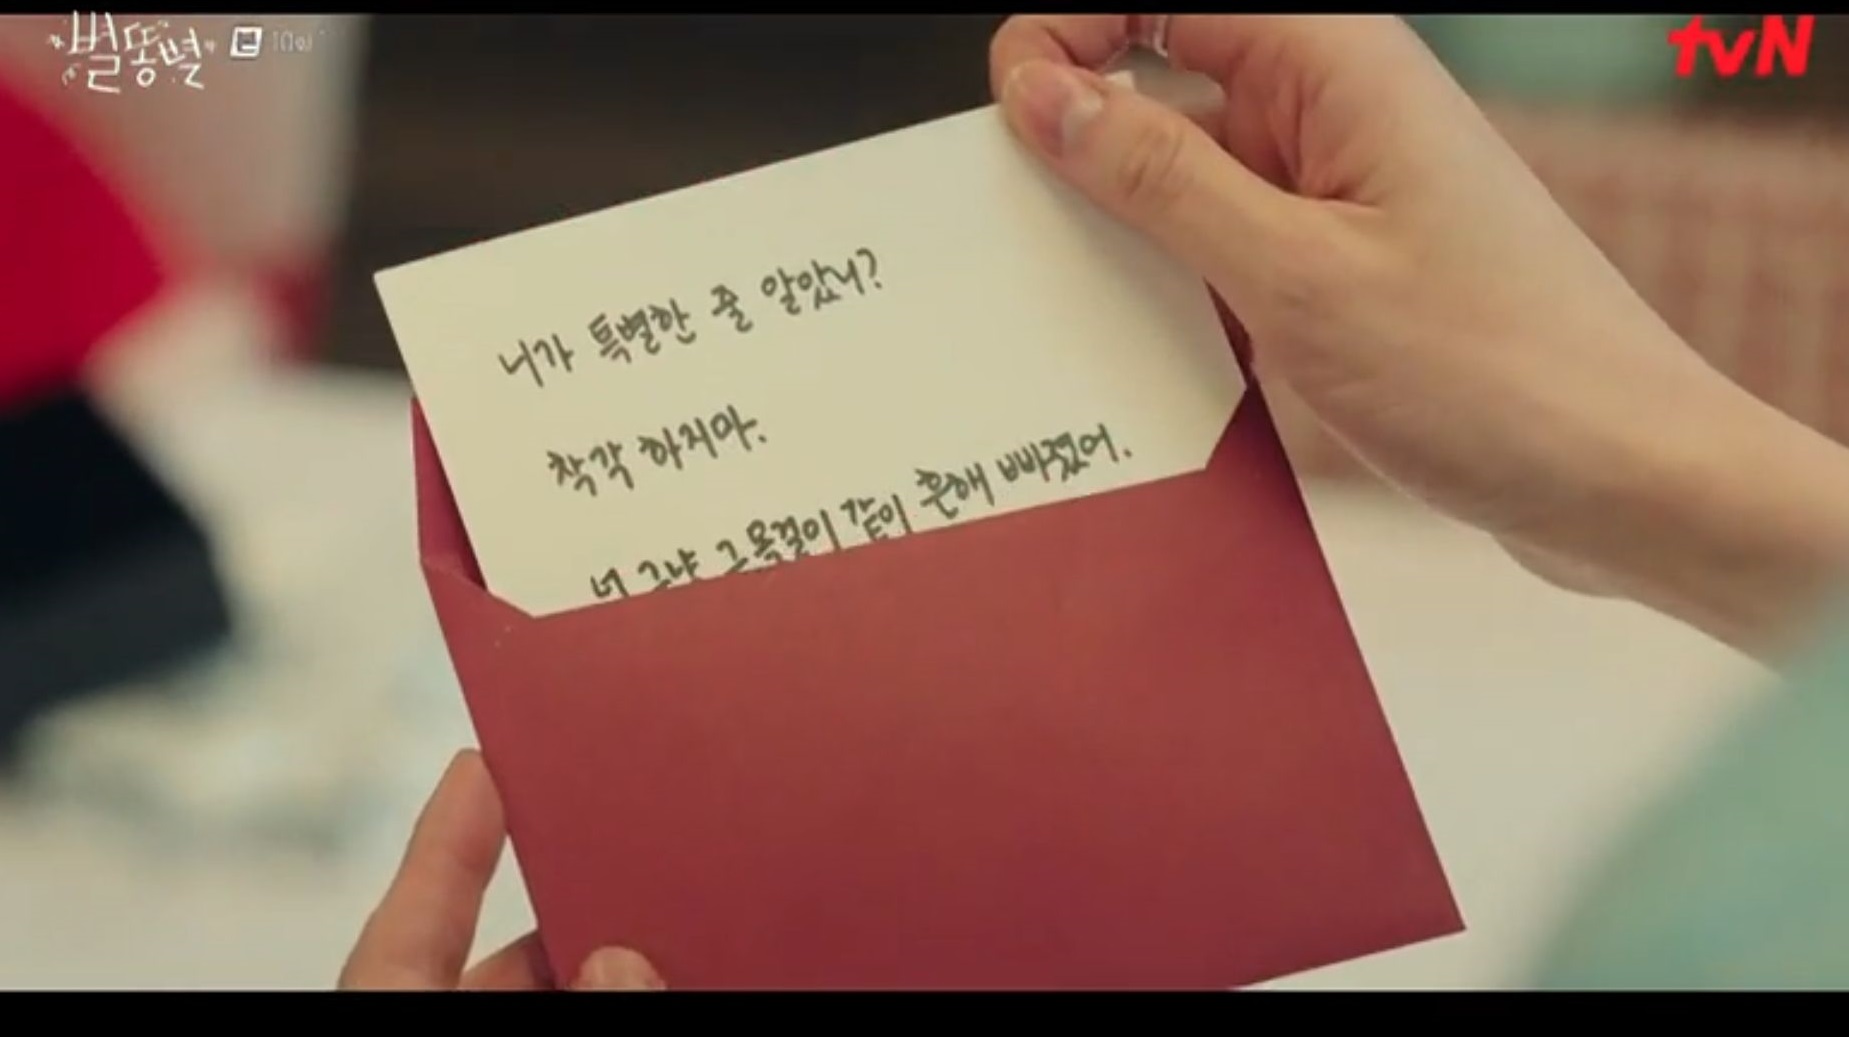 별똥별 10회
tvN
니가 특별한 줄 알았니?
착각 하지마.
넌 그냥 그 목걸이 같이 흔해 빠졌어.